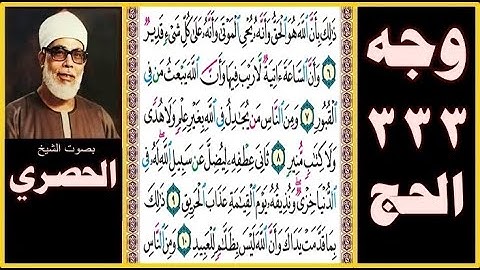 وجه
٣٣٣
الحج
ذَٰلِكَ بِأَنَّ ٱللَّهَ هُوَ ٱلْحَقُّ وَأَنَّهُۥ يُحْىِ ٱلْمَوْتَىٰ وَأَنَّهُۥ عَلَىٰ كُلِّ شَىْءٍ قَدِيرٌ
٦ وَأَنَّ ٱلسَّاعَةَ ءَاتِيَةٌ لَّا رَيْبَ فِيهَا وَأَنَّ ٱللَّهَ يَبْعَثُ مَن فِى
ٱلْقُبُورِ ٧ وَمِنَ ٱلنَّاسِ مَن يُجَٰدِلُ فِى ٱللَّهِ بِغَيْرِ عِلْمٍ وَلَا هُدًى
وَلَا كِتَٰبٍ مُّنِيرٍ ٨ ثَانِىَ عِطْفِهِۦ لِيُضِلَّ عَن سَبِيلِ ٱللَّهِ لَهُۥ فِى
ٱلدُّنْيَا خِزْىٌ وَنُذِيقُهُۥ يَوْمَ ٱلْقِيَٰمَةِ عَذَابَ ٱلْحَرِيقِ ٩ ذَٰلِكَ
بِمَا قَدَّمَتْ يَدَاكَ وَأَنَّ ٱللَّهَ لَيْسَ بِظَلَّٰمٍ لِّلْعَبِيدِ ١٠ وَمِنَ ٱلنَّاسِ
بصوت الشيخ
الحصري